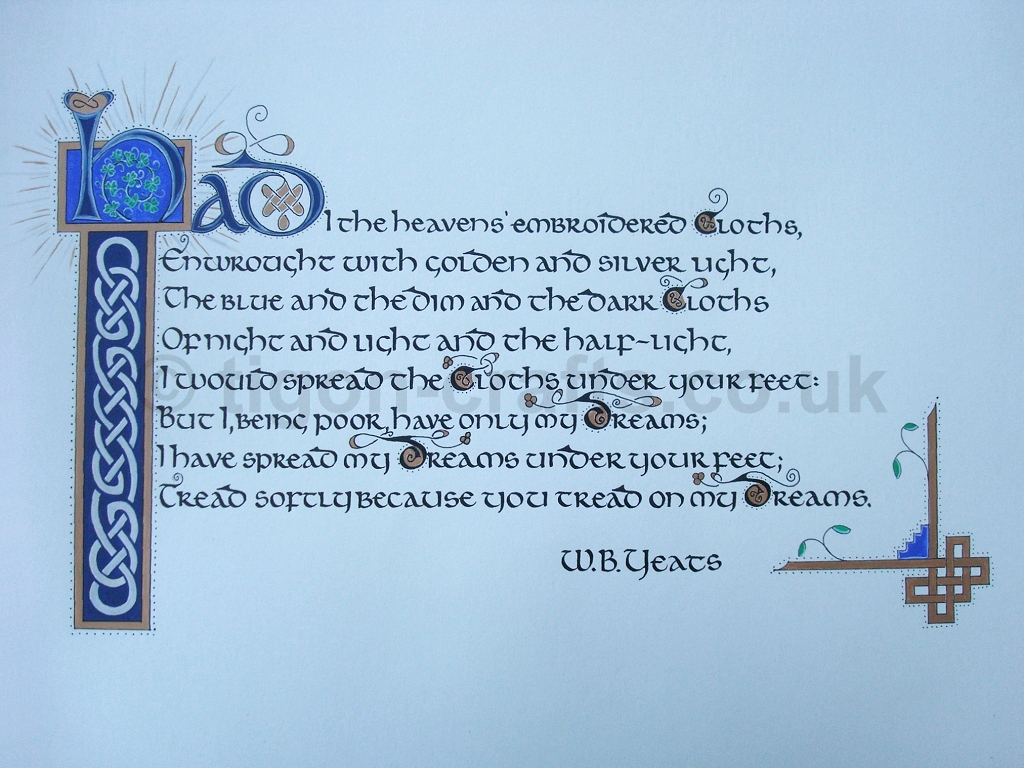 Had I the heavens' embroidered Cloths,
Enwrought with golden and silver light,
The blue and the dim and the dark Cloths
Of night and light and the half-light,
I would spread the Cloths under your feet:
But I, being poor, have only my Dreams;
I have spread my Dreams under your feet;
Tread softly because you tread on my Dreams.
W.B. Yeats
© tigon-crafts.co.uk